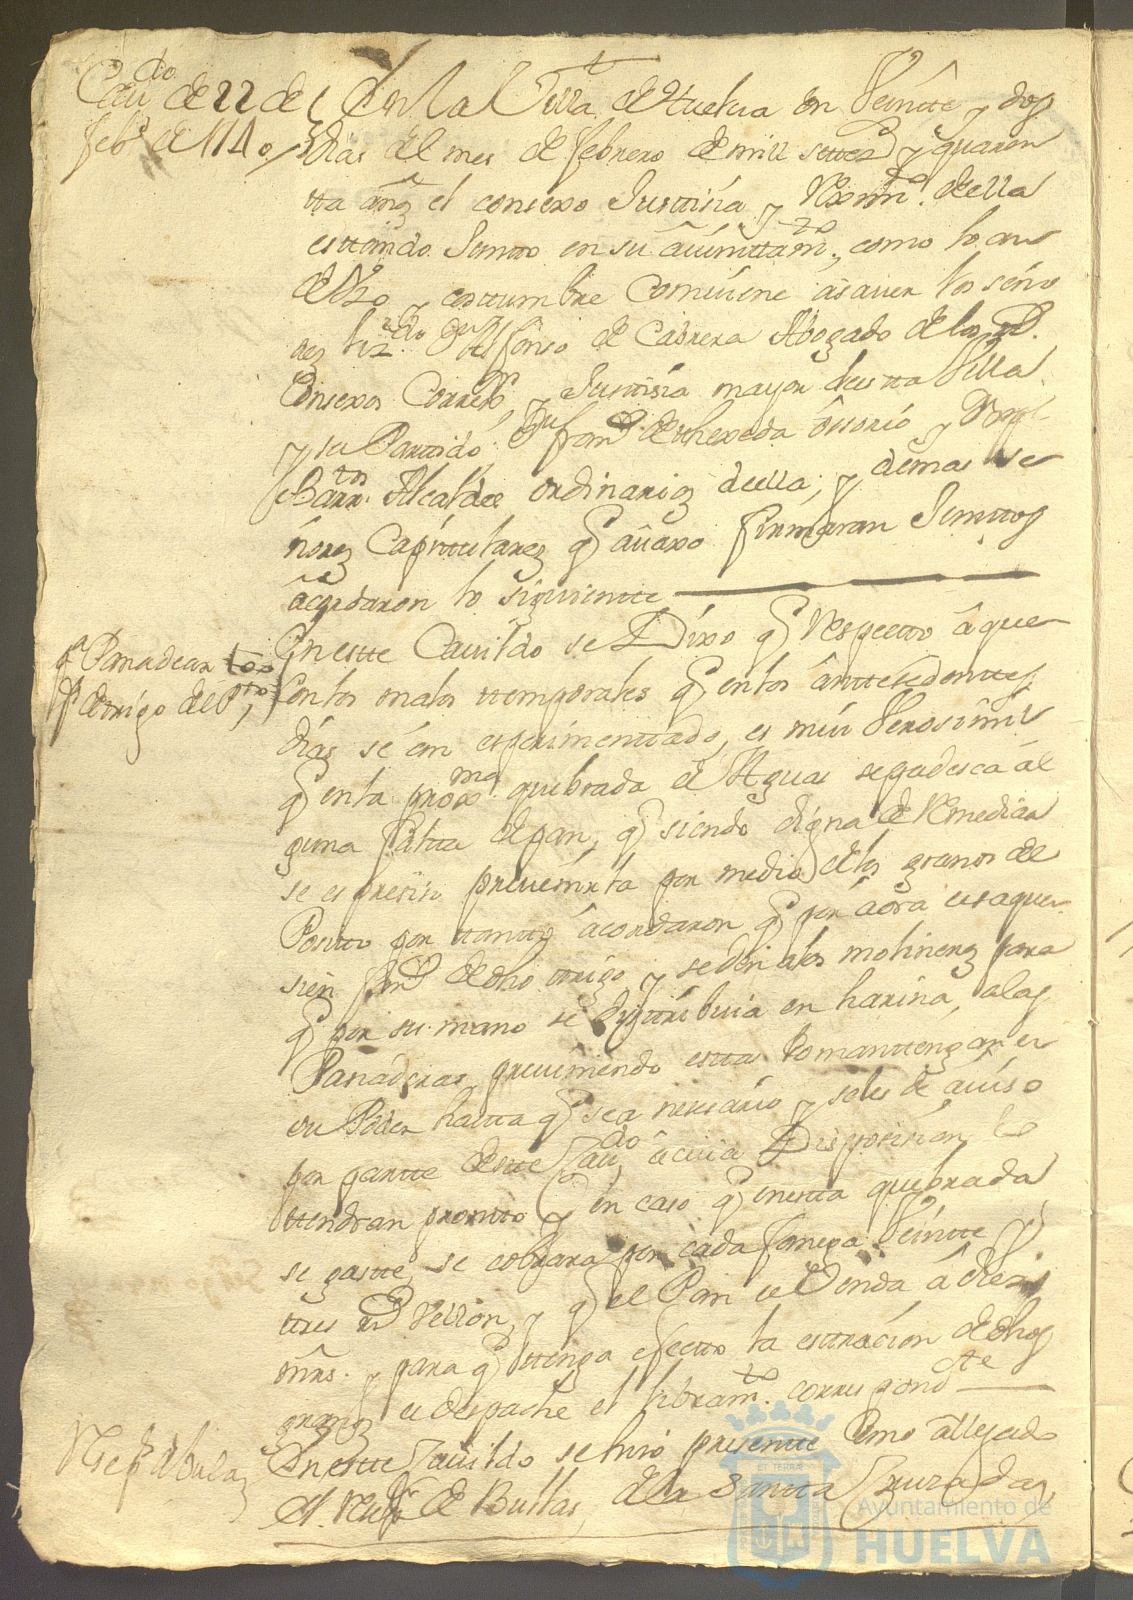 Cavdo de 22 de
febo de 1740
En la Villa de Huelva en Veintte y dos
dias del mes de febrero de mill settez y quaren
tta añs el consexo Justtisia y Reximto della
esttando Juntto en su aiunttamto como lo an
de Uzo y costtumbre Comviene asaver los seño
res Lizdo Dn Alfonso de Cabrera Abogado de los Rs
Consexos Correxr y Justtisia mayor destta Villa
y su Parttido Dn franco de Ossorio y
Alcaldes ordinarios della, y demas se
ñores Capittulares q avaxo firmaran Junttos
acordaron lo siguientte
q Panadean
de trigo del Pto
En estte Cavildo se Dixo q Respectto a que
con los malos ttemporales q en los anttesedenttes
dias se an esperimenttado, es mui Verosimil
q en la proxma quebrada de Aguas se padesca al
guna faltta de pan, q siendo digna de Remediar
se es presiso prevenirla por medio de los granos del
Positto por tantto acordaron q por aora se saquen
sien fans de dho trigo y se den a los molineros para
q por su mano se disttribuia en harina, a las
Panaderas previniendo esttas lo manttengan en
su Poder hastta q sea nesesario y se les de aviso
por partte de estte Cavdo a cuia Disposision lo
ttendran prontto y en caso q en estta quebrada
se gastte, se cobrara por cada fanega Veintte y
ttres rs Vellon, y q el Pan se Venda a diez
mrs. y para q ttenga efectto la esttracion de dhos
granos se despache el libramto correspondte
Rr de bulas
En estte Cavildo se hizo presentte Como a llegado
el de Bullas, de la Santta Cruzada,
Ayuntamiento de
HUELVA